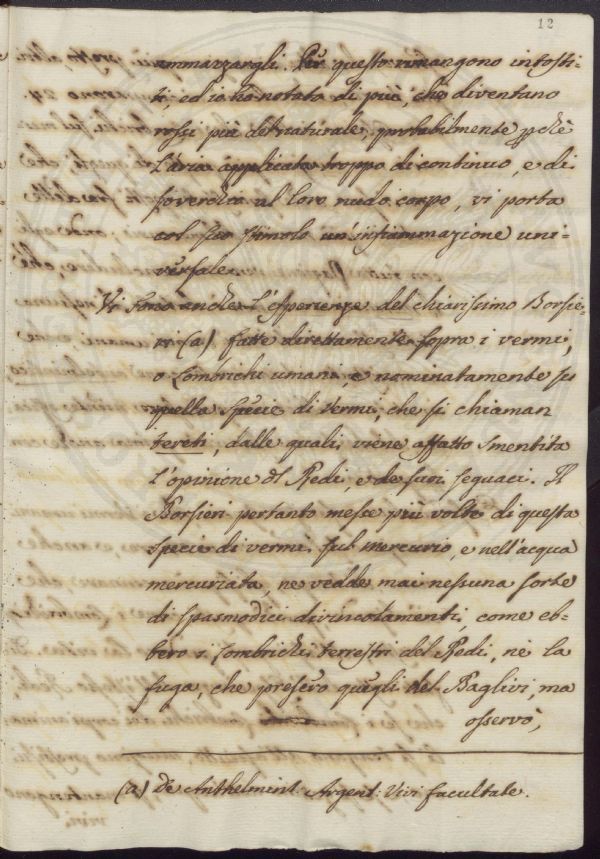 12
ammazzargli. Per questo rimangono intosti-
ti, ed io ho notato di più, che diventano
rossi più del naturale, probabilmente pchè
l'aria applicata troppo di continuo, e di
soverchio al loro nudo corpo, vi porta
col suo stimolo un'infiammazione uni-
versale.
Vi sono anche l'esperienze del chiarissimo Borsie-
ri (a) fatte direttamente sopra i vermi,
o Lombrichi umani, e nominatamente su
quella specie di vermi, che si chiaman
tereti, dalle quali viene affatto smentita
l'opinione dl Redi, e de suoi seguaci. Il
Borsieri pertanto messe più volte di questa
specie di vermi sul mercurio, e nell'acqua
mercuriata, ne vedde mai nessuna sorte
di spasmodici divincolamenti, come eb-
bero i Lombrichi terrestri del Redi, nè la
fuga, che presero quegli del Baglivi, ma
osservò,
(a) De Anthelmint: Argent: Vivi facultate.